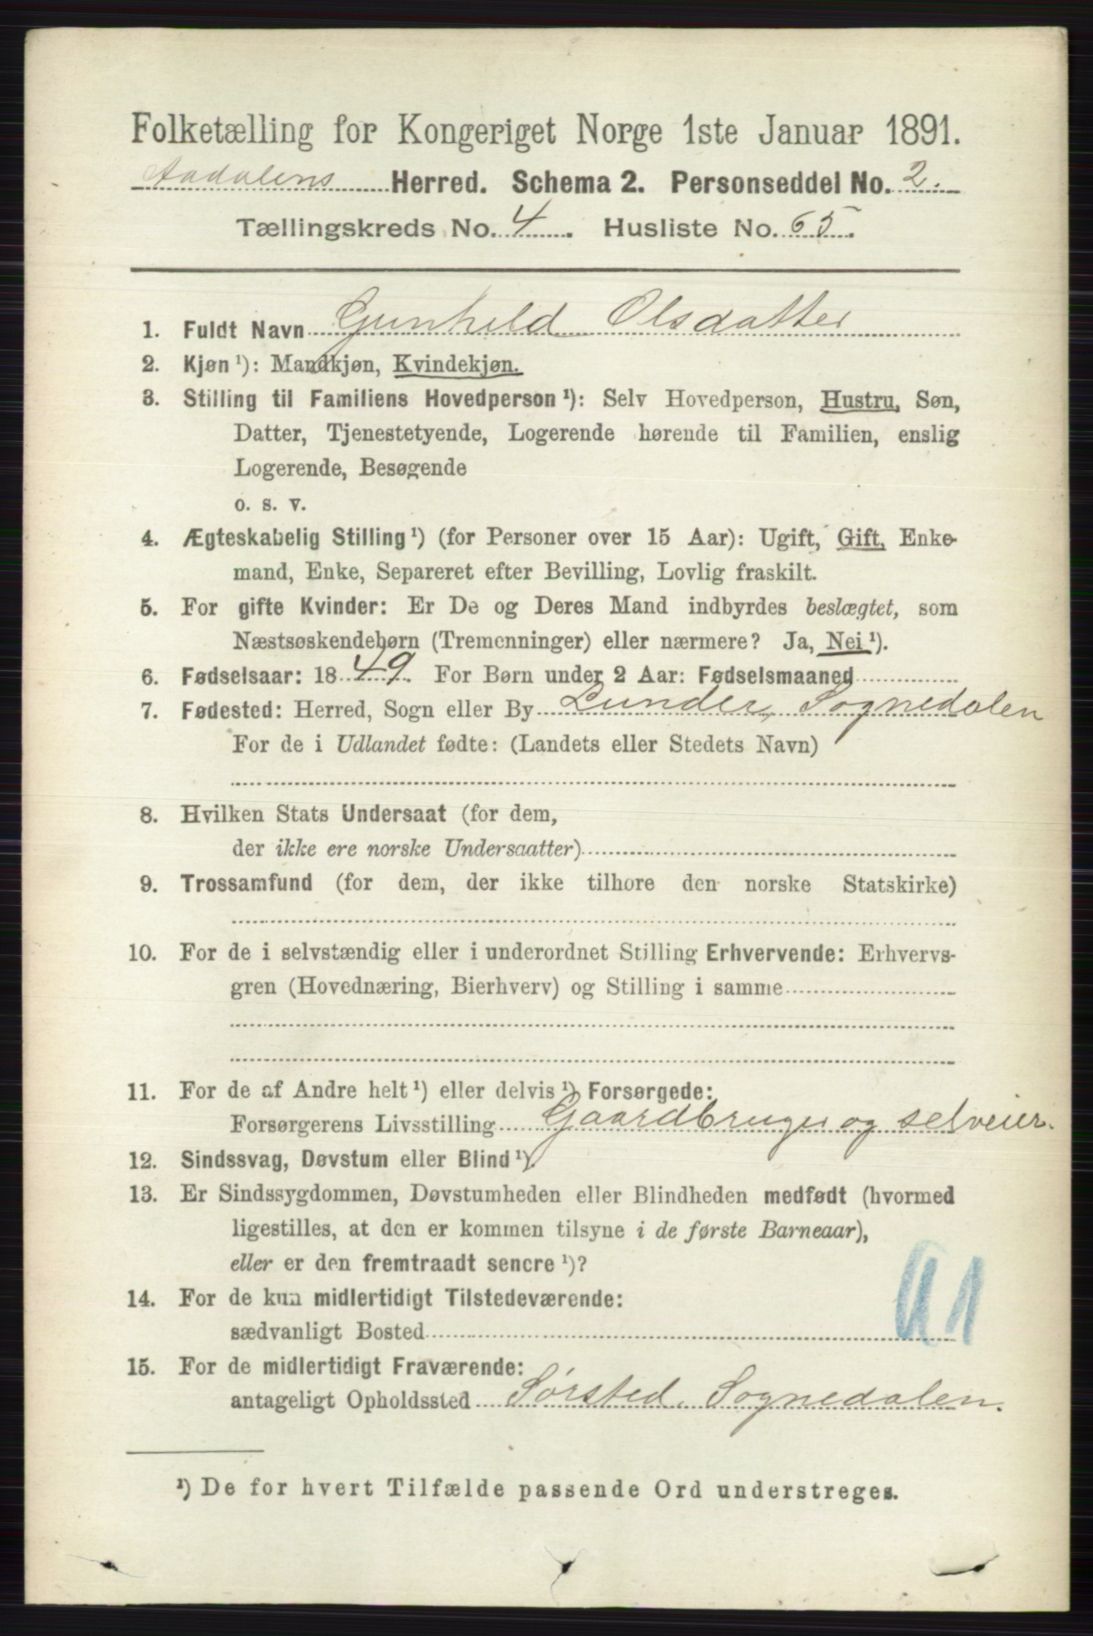 Folketælling for Kongeriget Norge 1ste Januar 1891.
Aadalens Herred. Schema 2. Personseddel No. 2.
Tællingskreds No. 4. Husliste No. 65.
1. Fuldt Navn Gunhild Olsdatter
2. Kjøn ¹): Mandkjøn, Kvindekjøn.
3. Stilling til Familiens Hovedperson ¹): Selv Hovedperson, Hustru, Søn,
Datter, Tjenestetyende, Logerende hørende til Familien, enslig
Logerende, Besøgende
o. s. v.
4. Ægteskabelig Stilling ¹) (for Personer over 15 Aar): Ugift, Gift, Enke-
mand, Enke, Separeret efter Bevilling, Lovlig fraskilt.
5. For gifte Kvinder: Er De og Deres Mand indbyrdes beslægtet, som
Næstsøskendebørn (Tremenninger) eller nærmere? Ja, Nei ¹).
6. Fødselsaar: 1849. For Børn under 2 Aar: Fødselsmaaned
7. Fødested: Herred, Sogn eller By Lunder, Sognedalen
For de i Udlandet fødte: (Landets eller Stedets Navn)
8. Hvilken Stats Undersaat (for dem,
der ikke ere norske Undersaatter)
9. Trossamfund (for dem, der ikke tilhøre den norske Statskirke)
10. For de i selvstændig eller i underordnet Stilling Erhvervende: Erhvervs-
gren (Hovednæring, Bierhverv) og Stilling i samme
11. For de af Andre helt ¹) eller delvis ¹) Forsørgede:
Forsørgerens Livsstilling Gaardbruger og selveier.
12. Sindssvag, Døvstum eller Blind ¹).
13. Er Sindssygdommen, Døvstumheden eller Blindheden medfødt (hvormed
ligestilles, at den er kommen tilsyne i de første Barneaar),
eller er den fremtraadt senere ¹)?
14. For de kun midlertidigt Tilstedeværende:
sædvanligt Bosted
15. For de midlertidigt Fraværende:
antageligt Opholdssted Sørsted. Sognedalen.
¹) De for hvert Tilfælde passende Ord understreges.